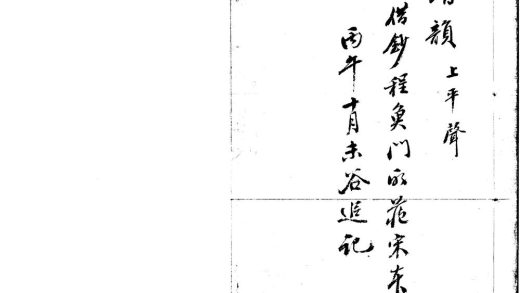 韻 上平聲
借鈔程魚門所藏宋本
丙午十月未谷追記